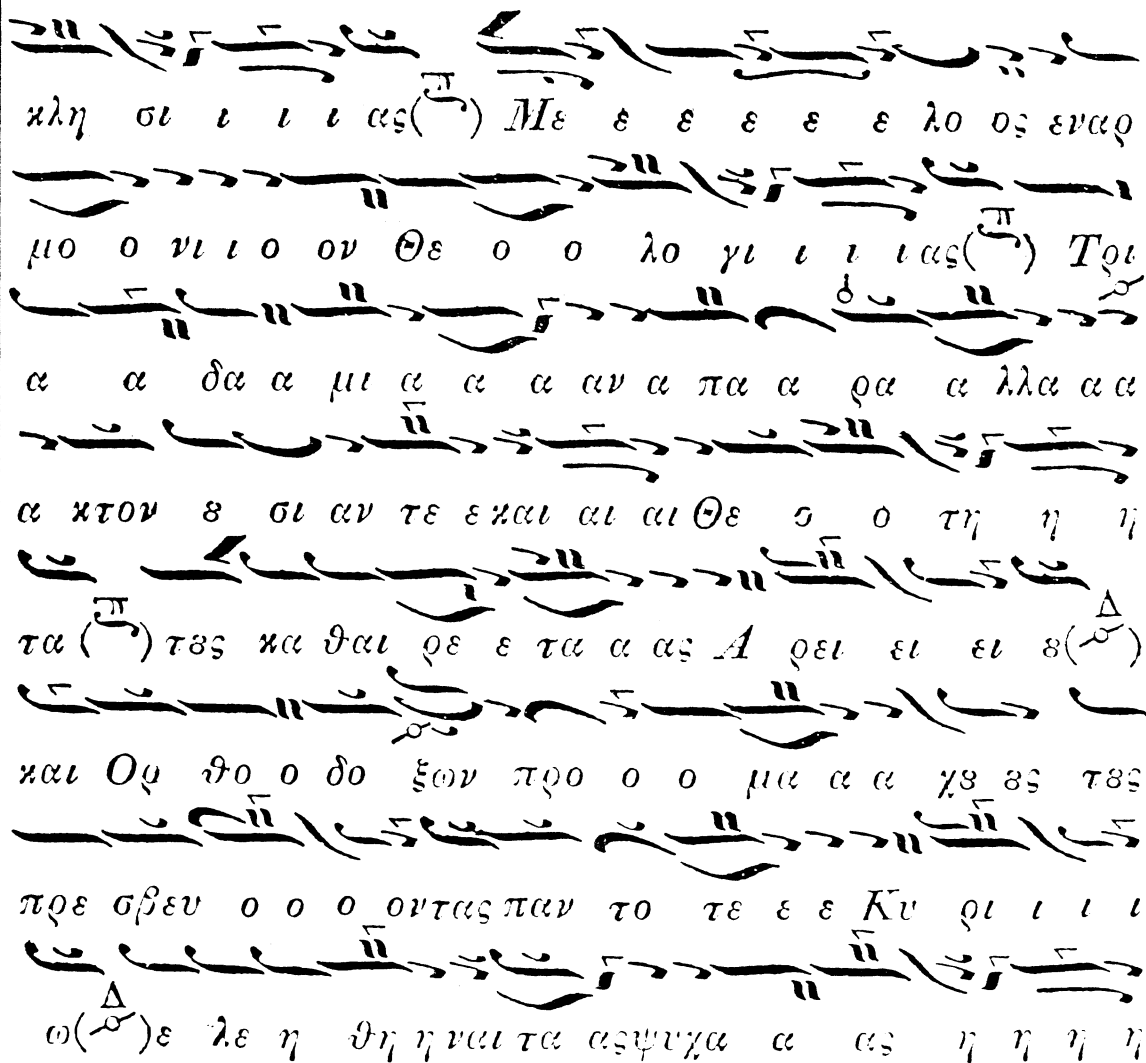 κλη σι ι ι ι ας (π) Με ε ε ε ε ε λο ος εναρ
μο ο νι ι ο ον Θε ο ο λο γι ι ι ι ας (π) Τρι
α α δα α μι α α α αν α πα α ρα α λλα α α
α κτον ȣ σι αν τε ε και αι αι Θε ο ο τη η η
τα (π) τȣς κα θαι ρε ε τα α ας Α ρει ει ει ȣ (Δ)
και Ορ θο ο δο ξων προ ο ο μα α α χȣ ȣς τȣς
πρε σβευ ο ο ο οντας παν το τε ε ε Κυ ρι ι ι ι
ω (Δ) ε λε η θη η ναι τα ας ψυχα α ας η η η η